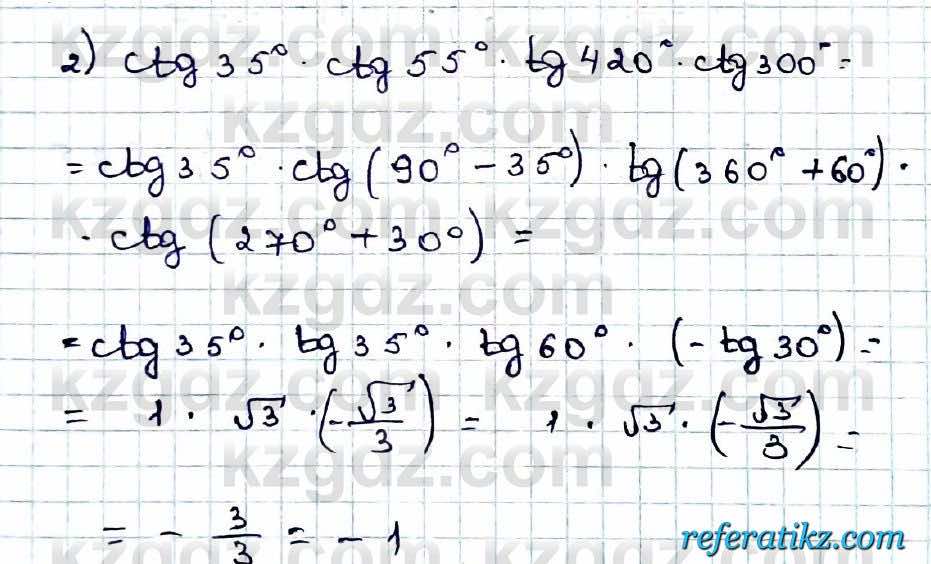 2) ctg 35° · ctg 55° · tg 420° · ctg 300° =
= ctg 35° · ctg (90° - 35°) · tg (360° + 60°) ·
· ctg (270° + 30°) =
= ctg 35° · tg 35° · tg 60° · (- tg 30°) =
= 1 · √3 · (-√3/3) = 1 · √3 · (-√3/3) =
= - 3/3 = - 1
kzgdz.com
referatikz.com